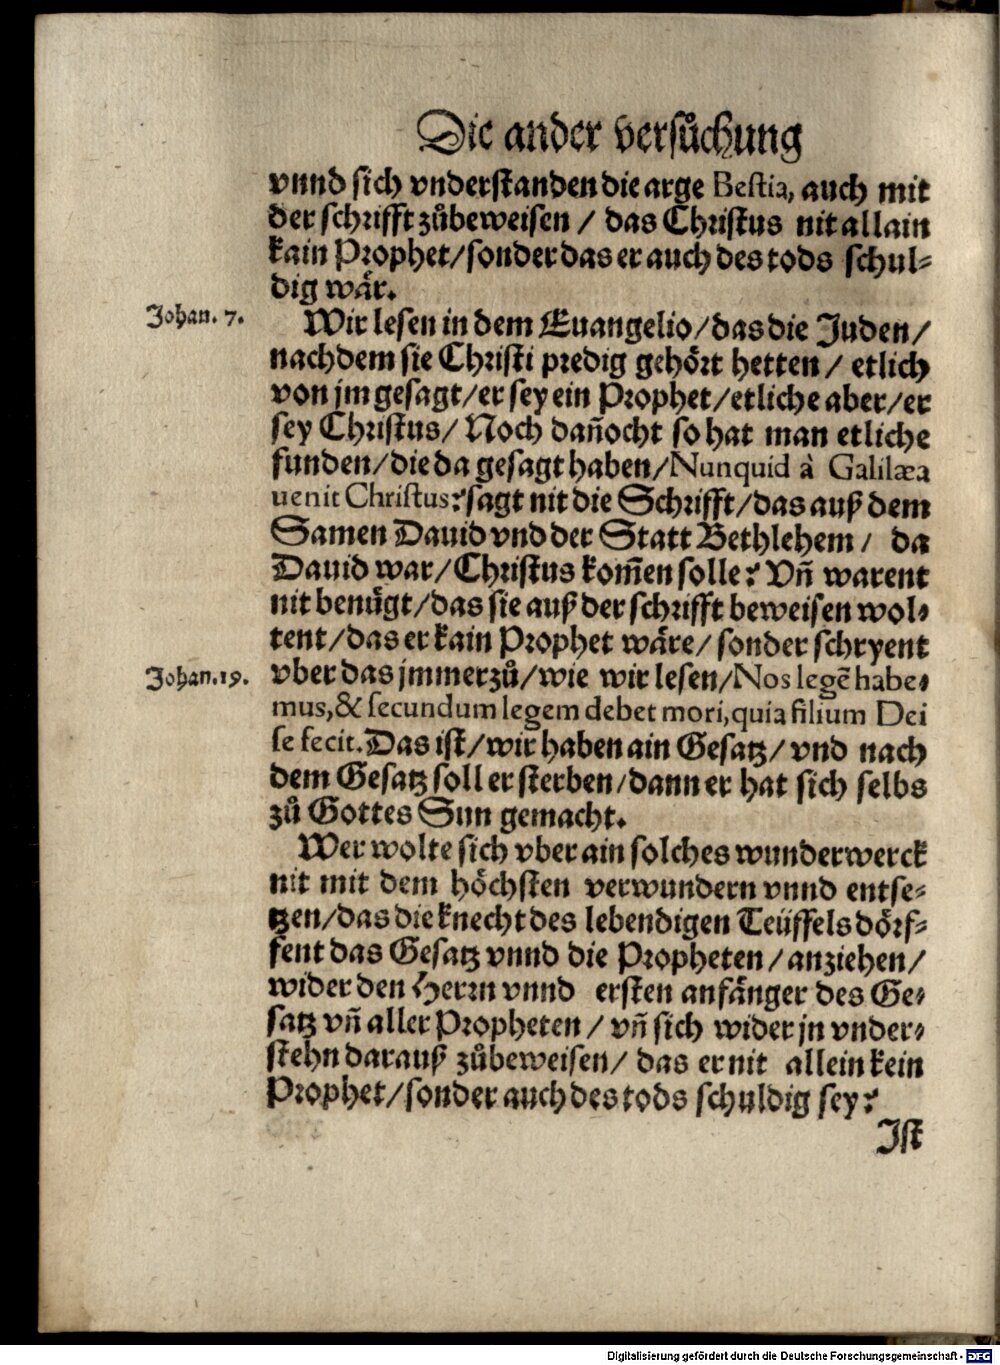 Die ander versůchung
vnnd sich vnderstanden die arge Bestia, auch mit
der schrifft zůbeweisen / das Christus nit allain
kain Prophet/sonder das er auch des tods schul⸗
dig wår.
Johan. 7.
Wir lesen in dem Euangelio/das die Juden/
nachdem sie Christi predig gehört hetten / etlich
von jm gesagt/er sey ein Prophet/etliche aber/er
sey Christus/ Noch dañocht so hat man etliche
funden/die da gesagt haben/Nunquid à Galilæa
uenit Christus? sagt nit die Schrifft/das auß dem
Samen Dauid vnd der Statt Bethlehem / da
Dauid war/Christus kom̃en solle? Vñ warent
nit benügt/das sie auß der schrifft beweisen wol⸗
tent/das er kain Prophet wäre/ sonder schryent
Johan.19.
vber das jmmerzů/wie wir lesen/Nos legẽ habe⸗
mus,& secundum legem debet mori,quia filium Dei
se fecit. Das ist/wir haben ain Gesatz/ vnd nach
dem Gesatz soll er sterben/dann er hat sich selbs
zů Gottes Sun gemacht.
Wer wolte sich vber ain solches wunderwerck
nit mit dem höchsten verwundern vnnd entse⸗
tzen/das die knecht des lebendigen Teüffels dörf⸗
fent das Gesatz vnnd die Propheten/anziehen/
wider den Herrn vnnd ersten anfänger des Ge⸗
satz vñ aller Propheten / vñ sich wider jn vnder⸗
stehn darauß zůbeweisen/ das er nit allein kein
Prophet/sonder auch des tods schuldig sey?
Ist
Digitalisierung gefördert durch die Deutsche Forschungsgemeinschaft - DFG